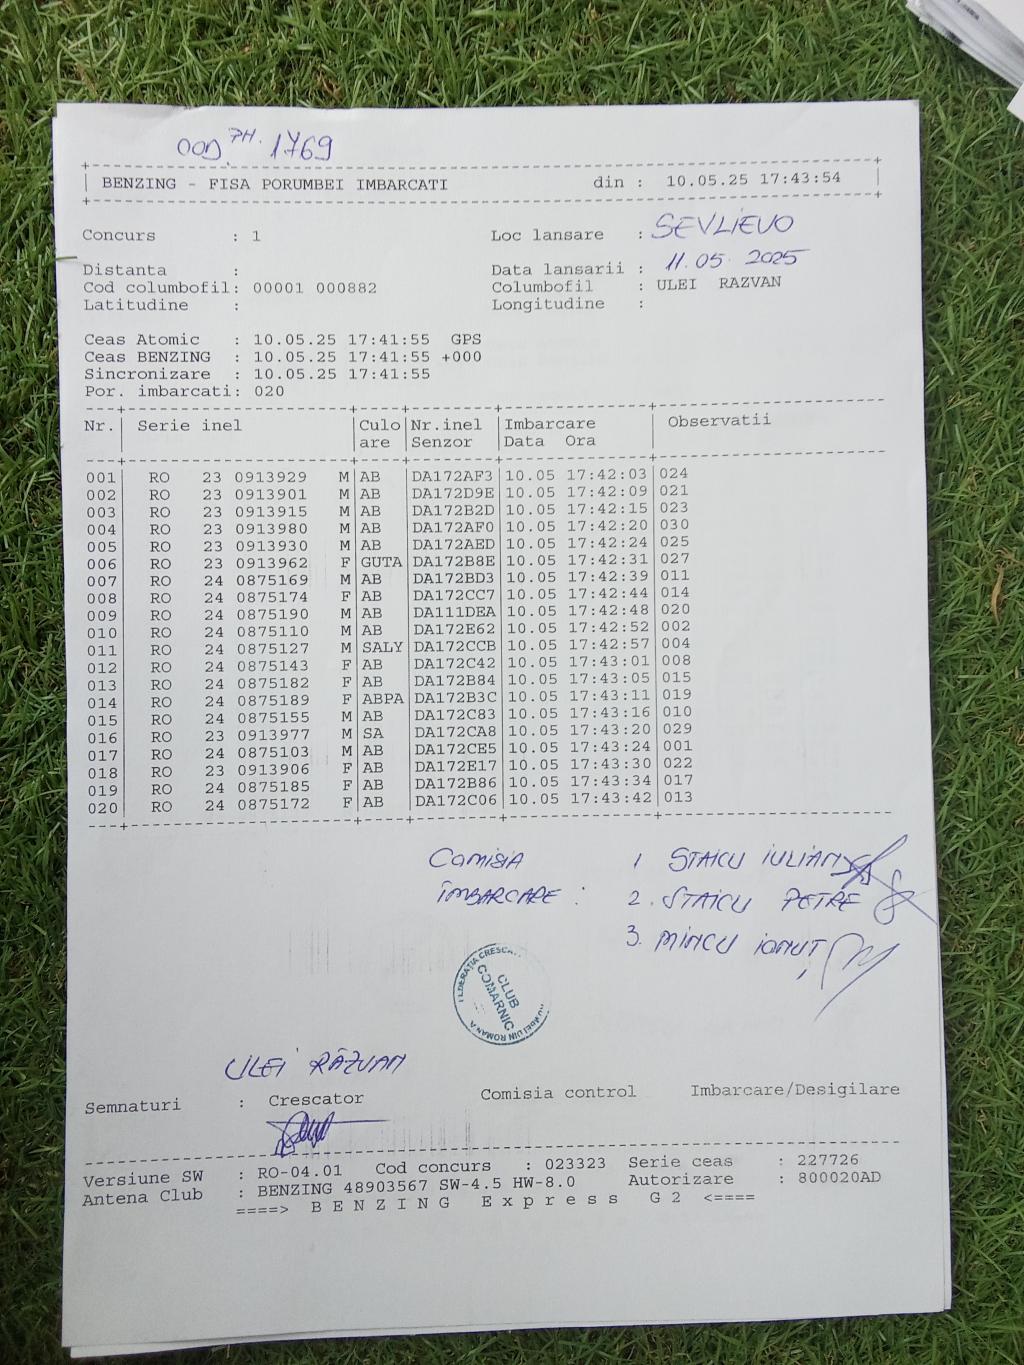 COD. PH. 1769
BENZING - FISA PORUMBEI IMBARCATI din : 10.05.25 17:43:54
Concurs : 1 Loc lansare : SEVLIEVO
Distanta : Data lansarii : 11.05.2025
Cod columbofil: 00001 000882 Columbofil : ULEI RAZVAN
Latitudine : Longitudine :
Ceas Atomic : 10.05.25 17:41:55 GPS
Ceas BENZING : 10.05.25 17:41:55 +000
Sincronizare : 10.05.25 17:41:55
Por. imbarcati: 020
Nr. Serie inel Culo Nr.inel Imbarcare Observatii
are Senzor Data Ora
001 RO 23 0913929 M AB DA172AF3 10.05 17:42:03 024
002 RO 23 0913901 M AB DA172D9E 10.05 17:42:09 021
003 RO 23 0913915 M AB DA172B2D 10.05 17:42:15 023
004 RO 23 0913980 M AB DA172AF0 10.05 17:42:20 030
005 RO 23 0913930 M AB DA172AED 10.05 17:42:24 025
006 RO 23 0913962 F GUTA DA172B8E 10.05 17:42:31 027
007 RO 24 0875169 M AB DA172BD3 10.05 17:42:39 011
008 RO 24 0875174 F AB DA172CC7 10.05 17:42:44 014
009 RO 24 0875190 M AB DA111DEA 10.05 17:42:48 020
010 RO 24 0875110 M AB DA172E62 10.05 17:42:52 002
011 RO 24 0875127 M SALY DA172CCB 10.05 17:42:57 004
012 RO 24 0875143 F AB DA172C42 10.05 17:43:01 008
013 RO 24 0875182 F AB DA172B84 10.05 17:43:05 015
014 RO 24 0875189 F ABPA DA172B3C 10.05 17:43:11 019
015 RO 24 0875155 M AB DA172C83 10.05 17:43:16 010
016 RO 23 0913977 M SA DA172CA8 10.05 17:43:20 029
017 RO 24 0875103 M AB DA172CE5 10.05 17:43:24 001
018 RO 23 0913906 F AB DA172E17 10.05 17:43:30 022
019 RO 24 0875185 F AB DA172B86 10.05 17:43:34 017
020 RO 24 0875172 F AB DA172C06 10.05 17:43:42 013
COMISIA 1 STAICU IULIAN
ÎMBARCARE : 2. STAICU PETRE
3. MINCU IONUȚ
CLUB
COMARNIC
DIN ROMANIA
ULEI RĂZVAN
Semnaturi : Crescator Comisia control Imbarcare/Desigilare
Versiune SW : RO-04.01 Cod concurs : 023323 Serie ceas : 227726
Antena Club : BENZING 48903567 SW-4.5 HW-8.0 Autorizare : 800020AD
====> B E N Z I N G E x p r e s s G 2 <====